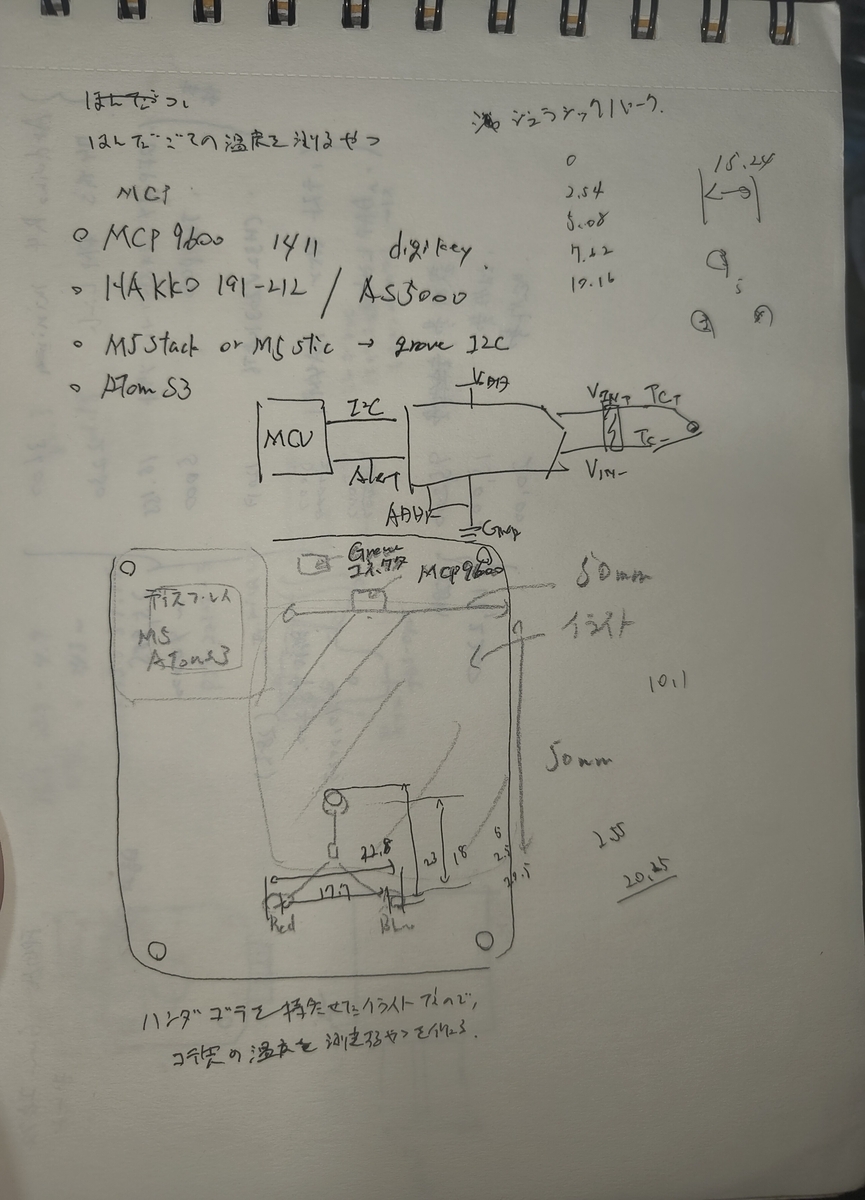 はんだごての温度を測るやつ
ジュラシックパーク.
MCP
MCP 9600 1411 digikey.
HAKKO 191-212 / AS5000
M5Stack or M5stic → grove I2C
Atom S3
0
2.54
5.08
7.62
10.16
15.24
MCU
I2C
Alert
VDD
ADDR
GND
VIN+
TC+
TC-
VIN-
Grove
コネクタ
MCP9600
ディスプレイ
M5
ATomS3
50mm
イラスト
10.1
50mm
22.8
23
18
17.7
Red
Blu
255
20.35
ハンダゴテを持たせたイラストなので,
コテ先の温度を測定するやつを作る.